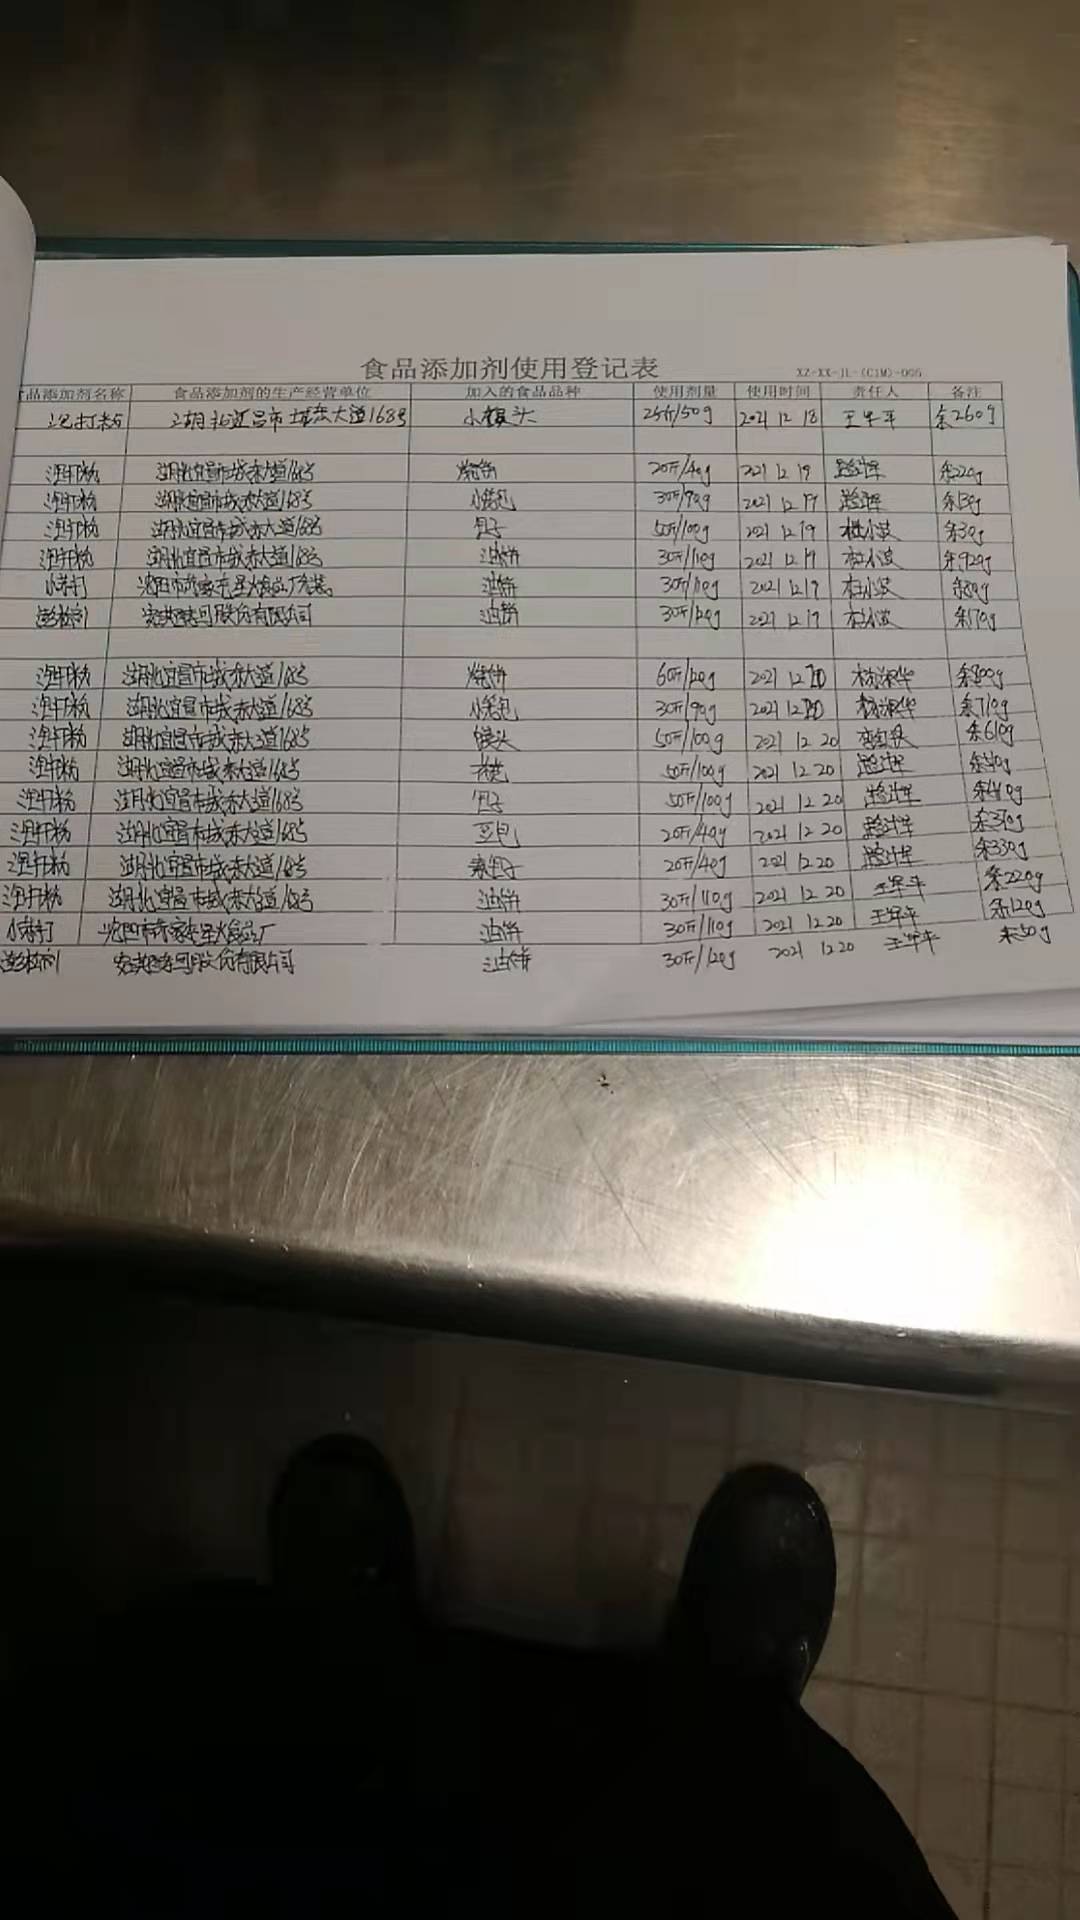 食品添加剂使用登记表
XZ-XX-JL-(CIM)-005
食品添加剂名称 食品添加剂的生产经营单位 加入的食品品种 使用剂量 使用时间 责任人 备注
泡打粉 湖北宜昌市城东大道168号 小馒头 25斤/50g 2021 12 18 王军平 余260g
泡打粉 湖北宜昌市城东大道168号 烧饼 20斤/40g 2021 12 19 余220g
泡打粉 湖北宜昌市城东大道168号 小笼包 30斤/90g 2021 12 19
泡打粉 湖北宜昌市城东大道168号 包子 50斤/100g 2021 12 19 杜小波 余30g
泡打粉 湖北宜昌市城东大道168号 油饼 30斤/110g 2021 12 19 杜小波 余920g
小苏打 油饼 30斤/110g 2021 12 19 杜小波
膨松剂 安琪酵母股份有限公司 油饼 30斤/120g 2021 12 19 杜小波 余170g
泡打粉 湖北宜昌市城东大道168号 烧饼 60斤/120g 2021 12 20 余800g
泡打粉 湖北宜昌市城东大道168号 小笼包 30斤/90g 2021 12 20 余710g
泡打粉 湖北宜昌市城东大道168号 馒头 50斤/100g 2021 12 20 余610g
泡打粉 湖北宜昌市城东大道168号 50斤/100g 2021 12 20
泡打粉 湖北宜昌市城东大道168号 包子 50斤/100g 2021 12 20 余410g
泡打粉 湖北宜昌市城东大道168号 豆包 20斤/40g 2021 12 20 余370g
泡打粉 湖北宜昌市城东大道168号 素包子 20斤/40g 2021 12 20 余330g
泡打粉 湖北宜昌市城东大道168号 油饼 30斤/110g 2021 12 20 王军平 余220g
小苏打 油饼 30斤/110g 2021 12 20 王军平 余120g
膨松剂 安琪酵母股份有限公司 油饼 30斤/120g 2021 12 20 王军平 余50g